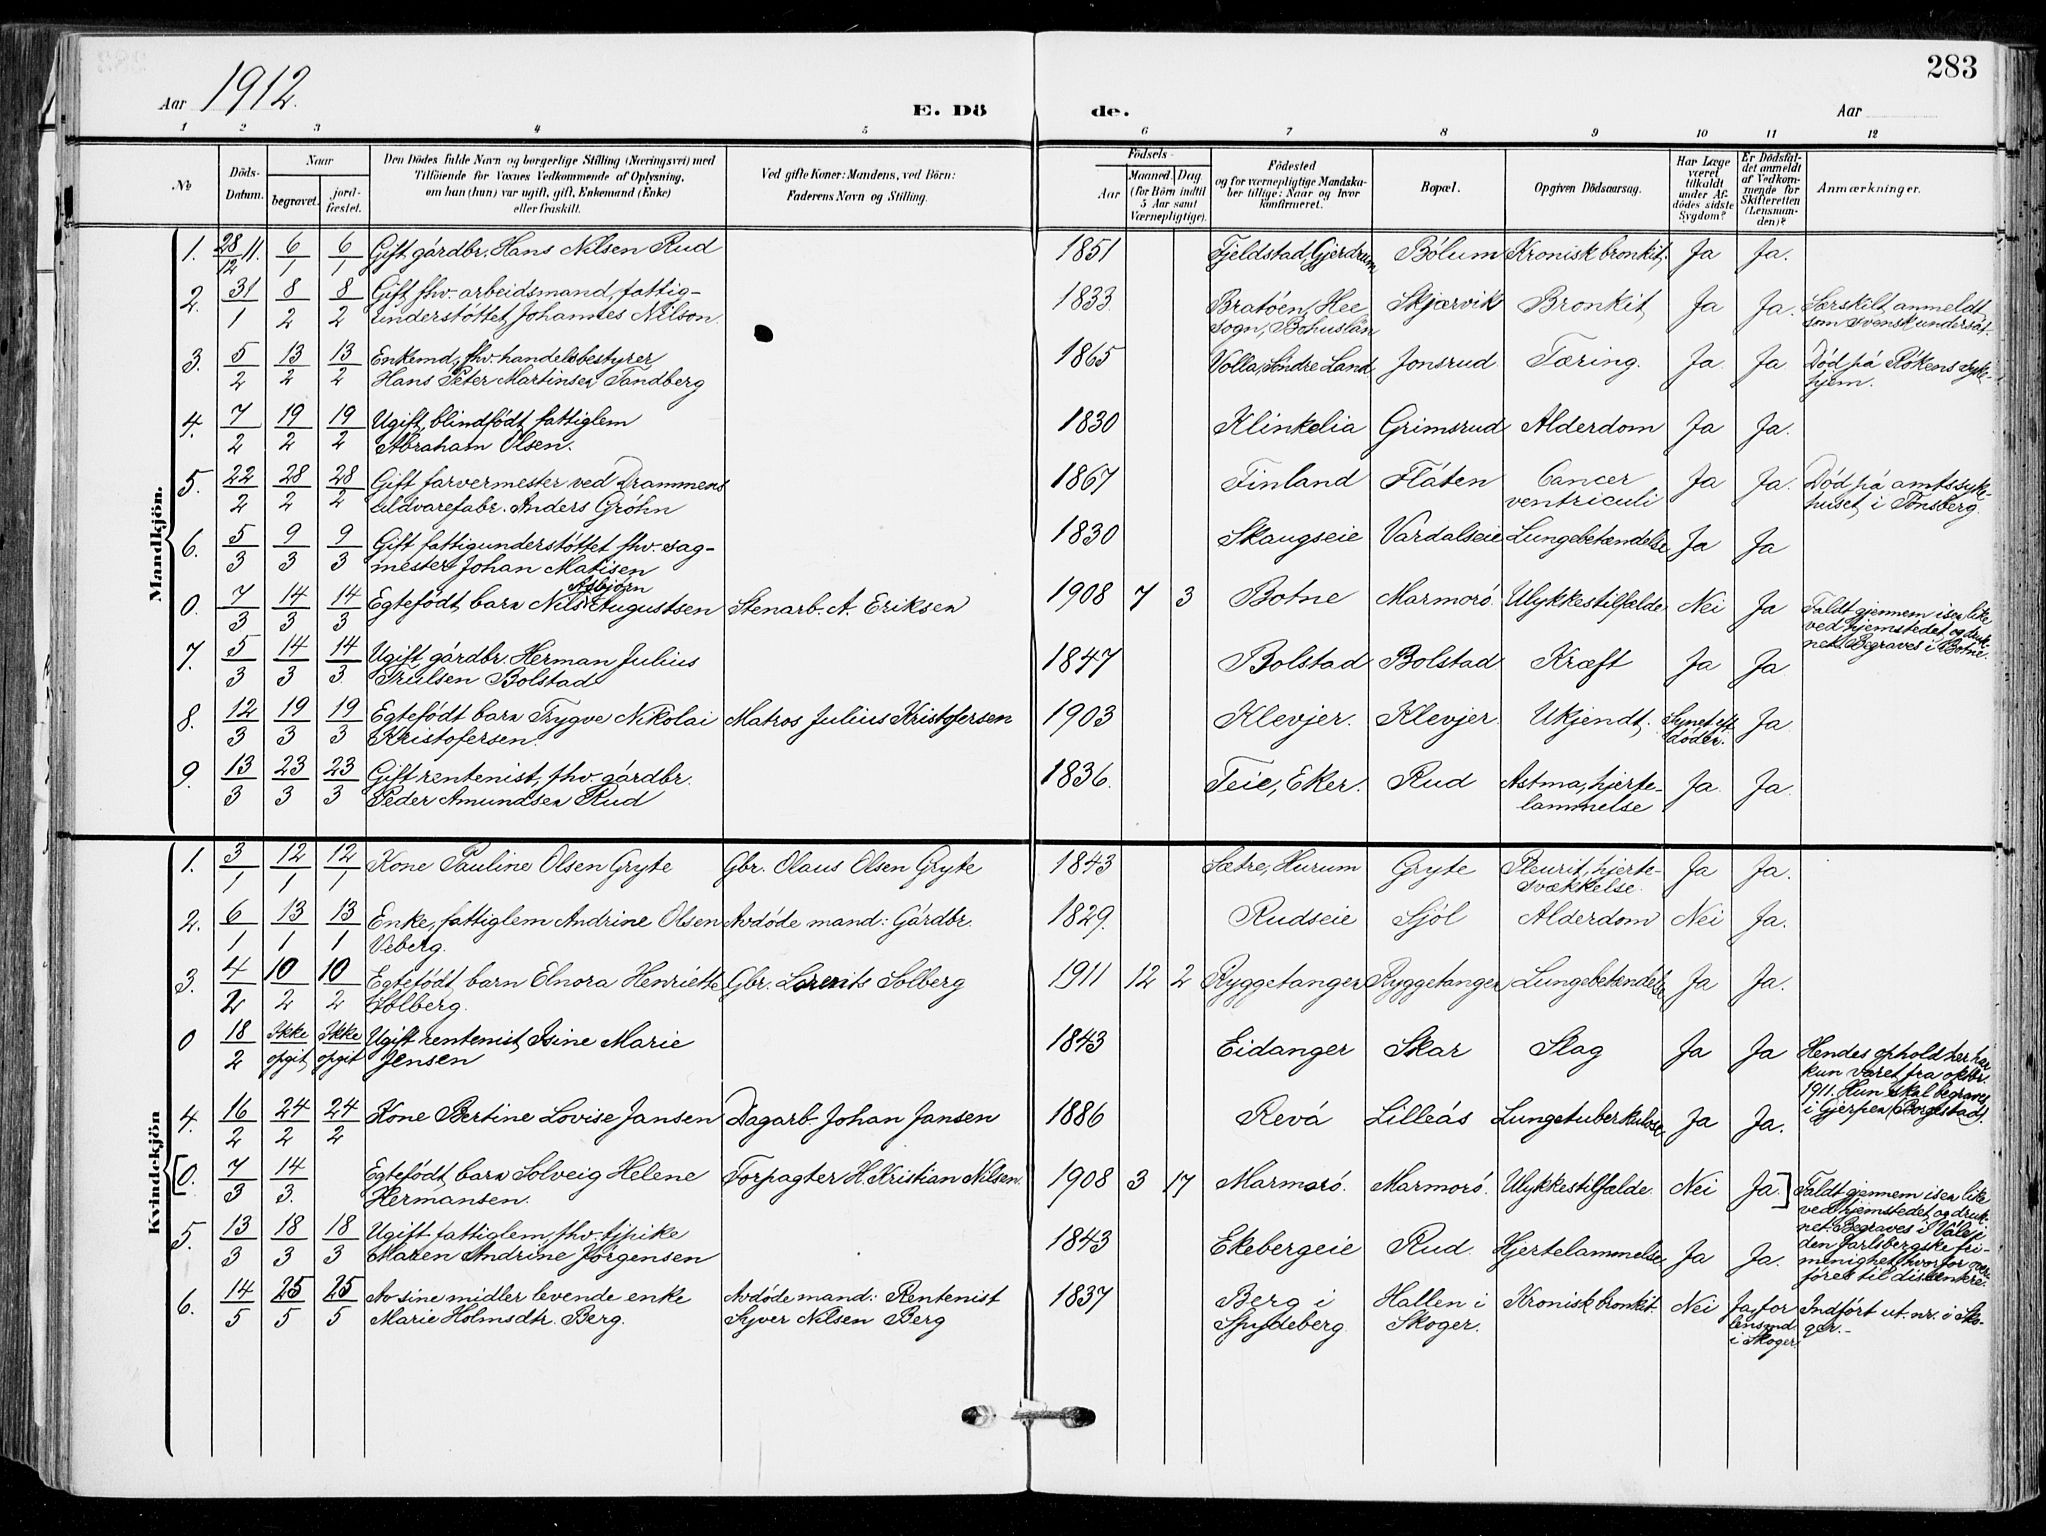 283
Aar 1912.
E. Dö de.
Aar
1 2 3 4 5 6 7 8 9 10 11 12
No
Döds-Datum.
Naar
begravet.
jord-fæstet.
Den Dödes fulde Navn og borgerlige Stilling (Næringsvei) med
Tilföiende for Voxnes Vedkommende af Oplysning,
om han (hun) var ugift, gift, Enkemand (Enke)
eller fraskilt.
Ved gifte Koner: Mandens, ved Börn:
Faderens Navn og Stilling.
Födsels-
Aar
Maaned. Dag.
(for Börn indtil
5 Aar samt
Værnepligtige).
Födested
og for værnepligtige Mandska-
ber tillige: Naar og hvor
konfirmeret.
Bopæl.
Opgiven Dödsaarsag.
Har Læge
været
tilkaldt
under Af-
dödes sidste
Sygdom?
Er Dödsfal-
det anmeldt
af Vedkom-
mende for
Skifteretten
(Lensman-
den)?
Anmærkninger.
Mandkjön.
1. 28/12 11. 6/1 6/1 Gift gårdbr. Hans Nilsen Rud 1851 Fjeldstad, Gjerdrum Bölum Kronisk bronkit. Ja Ja.
2. 31/1 8/2 8/2 Gift, fhv. arbeidsmand, fattig- 1833. Bratöen, Hee Skjærvik Bronkit Ja Ja. Særskilt anmeldt
understöttet Johannes Nilson. sogn, Bohuslän som svensk undersåt.
3. 5/2 13/2 13/2 Enkemd, fhv. handelsbestyrer 1865 Volla, Söndre Land Jonsrud Tæring. Ja. Ja Död på Rökens syke-
Hans Peter Martinsen Tandberg hjem.
4. 7/2 19/2 19/2 Ugift, blindfödt fattiglem 1830 Klinkelia Grimsrud Alderdom Ja Ja.
Abraham Olsen.
5. 22/2 28/2 28/2 Gift farvermester ved Drammens 1867 Finland Flåten Cancer Ja Ja. Död på amtssyke-
uldvarefabr. Anders Gröhn ventriculi huset i Tönsberg.
6. 5/3 9/3 9/3 Gift fattigunderstöttet fhv. sag- 1830 Skaugseie Vardalseie Lungebetændelse Ja Ja
mester Johan Matisen
0. 7/3 14/3 14/3 Egtefödt barn Nils Asbjörn Augustsen Stenarb. A. Eriksen 1908 7 3 Botne Marmorö. Ulykkestilfælde Nei Ja Faldt gjennem isen like
ved hjemstedet og druk-
net. Begraves i Botne.
7. 5/3 14/3 14/3 Ugift gårdbr. Herman Julius 1847 Bolstad Bolstad Kræft Ja Ja
Trulsen Bolstad
8. 12/3 19/3 19/3 Egtefödt barn Trygve Nikolai Matros Julius Kristofersen 1903 Klevjer. Klevjer. Ukjendt. Synet eft. Ja
Kristofersen. döden.
9. 13/3 23/3 23/3 Gift rentenist, fhv. gårdbr. 1836. Teie, Eker. Rud Astma, hjerte- Ja. Ja.
Peder Amundsen Rud lammelse
Kvindekjön
1. 3/1 12/1 12/1 Kone Pauline Olsen Gryte Gbr. Olaus Olsen Gryte 1843 Sætre, Hurum Gryte Pleurit, hjerte- Ja Ja.
svækkelse.
2. 6/1 13/1 13/1 Enke, fattiglem Andrine Olsen Avdöde mand: Gårdbr. 1829. Rudseie Sjöl Alderdom Nei Ja.
Veberg.
3. 4/2 10/2 10/2 Egtefödt barn Elnora Henriette Gbr. Lorents Solberg 1911 12 2 Ryggetangen Ryggetangen Lungebetændelse Ja Ja.
Solberg.
0 18/2 Ikke opgit Ikke opgit Ugift rentenist Isine Marie 1843 Eidanger Skar Slag Ja Ja Hendes ophold her har
Jensen kun været fra oktbr.
1911. Hun skal begraves
i Gjerpen (Borgestad).
4. 16/2 24/2 24/2 Kone Bertine Lovise Jansen Dagarb. Johan Jansen 1886 Revå Lilleås Lungetuberkulose Ja Ja.
[0. 7/3 14/3. Egtefödt barn Solveig Helene Forpagter H. Kristian Nilsen. 1908 3 17 Marmorö. Marmorö. Ulykkestilfælde. Nei Ja.] Faldt gjennem isen like
Hermansen. ved hjemstedet og druk-
net. Begraves i Våle i
den Jarlsbergske fri-
menighet, hvorfor over-
föres til dissenterei
5. 13/3 18/3 18/3 Ugift fattiglem, fhv. tjpike 1843 Ekebergeie Rud. Hjertelammelse Ja Ja.
Maren Andrine Jörgensen
6. 14/5 25/5 25/5 Av sine midler levende enke Avdöde mand: Rentenist 1837 Berg i Hallen i Kronisk bronkit. Nei Ja, for Indfört ut. nr. i Sko-
Marie Holmsdtr. Berg. Syver Nilsen Berg Spydeberg. Skoger. lensmd. ger.-
i Skoger.